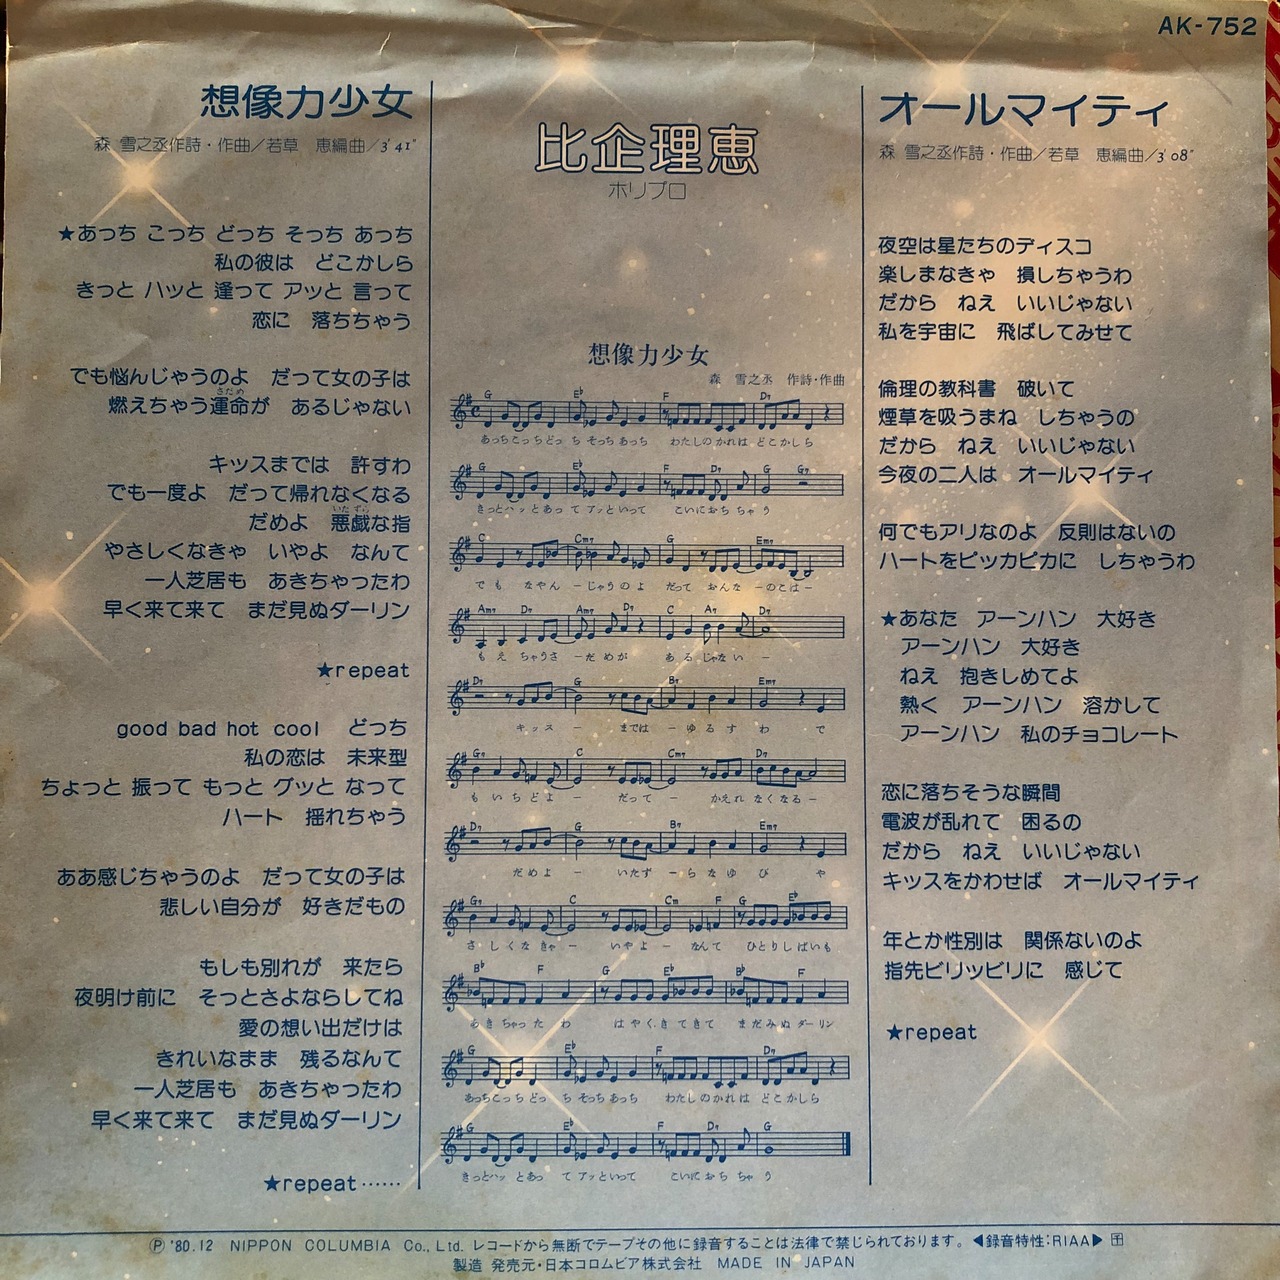 AK-752
想像力少女
森 雪之丞作詩・作曲／若草 恵編曲／3'41"
★あっち こっち どっち そっち あっち
私の彼は どこかしら
きっと ハッと 逢って アッと 言って
恋に 落ちちゃう
でも悩んじゃうのよ だって女の子は
さだめ
燃えちゃう運命が あるじゃない
キッスまでは 許すわ
でも一度よ だって帰れなくなる
いたずら
だめよ 悪戯な指
やさしくなきゃ いやよ なんて
一人芝居も あきちゃったわ
早く来て来て まだ見ぬダーリン
★repeat
good bad hot cool どっち
私の恋は 未来型
ちょっと 振って もっと グッと なって
ハート 揺れちゃう
ああ感じちゃうのよ だって女の子は
悲しい自分が 好きだもの
もしも別れが 来たら
夜明け前に そっとさよならしてね
愛の想い出だけは
きれいなまま 残るなんて
一人芝居も あきちゃったわ
早く来て来て まだ見ぬダーリン
★repeat……
比企理恵
ホリプロ
想像力少女
森 雪之丞 作詩・作曲
G E♭ F D7
あっちこっちどっ ち そっち あっち わたしの かれは どこかしら
G E♭ F D7 G G7
きっとハッ とあっ て アッといって こいにおち ちゃ う
C Cm7 G Em7
で も なやん ーじゃうの よ だって おんな ーのこはー
Am7 D7 Am7 D7 C A7 D7
も え ちゃうさ ーだ めが あ る じゃない ー
D7 G B7 Em7
キッス ー までは ーゆ る す わ で
G7 C Cm7 D7
も い ち ど よ ー だって ー かえれ なくなるー
D7 G B7 Em7
だめよ ー いたず ーら な ゆ び や
G7 C Cm F G E♭
さ し く な きゃ ー いやよ ー なんて ひとりしばいも
B♭ F G E♭ B♭ F
あ き ちゃっ た わ は や く き て き て ま だ み ぬ ダー リン
G E♭ F D7
あっちこっち どっ ち そっち あっち わたし の か れ は ど こ か し ら
G E♭ F D7 G
きっとハッ とあっ て アッ といって こいに お ち ちゃ う
オールマイティ
森 雪之丞作詩・作曲／若草 恵編曲／3'08"
夜空は星たちのディスコ
楽しまなきゃ 損しちゃうわ
だから ねえ いいじゃない
私を宇宙に 飛ばしてみせて
倫理の教科書 破いて
煙草を吸うまね しちゃうの
だから ねえ いいじゃない
今夜の二人は オールマイティ
何でもアリなのよ 反則はないの
ハートをピッカピカに しちゃうわ
★あなた アーンハン 大好き
アーンハン 大好き
ねえ 抱きしめてよ
熱く アーンハン 溶かして
アーンハン 私のチョコレート
恋に落ちそうな瞬間
電波が乱れて 困るの
だから ねえ いいじゃない
キッスをかわせば オールマイティ
年とか性別は 関係ないのよ
指先ビリッビリに 感じて
★repeat
Ⓟ '80.12 NIPPON COLUMBIA Co., Ltd. レコードから無断でテープその他に録音することは法律で禁じられております。 ◀録音特性:RIAA▶
製造 発売元・日本コロムビア株式会社 MADE IN JAPAN